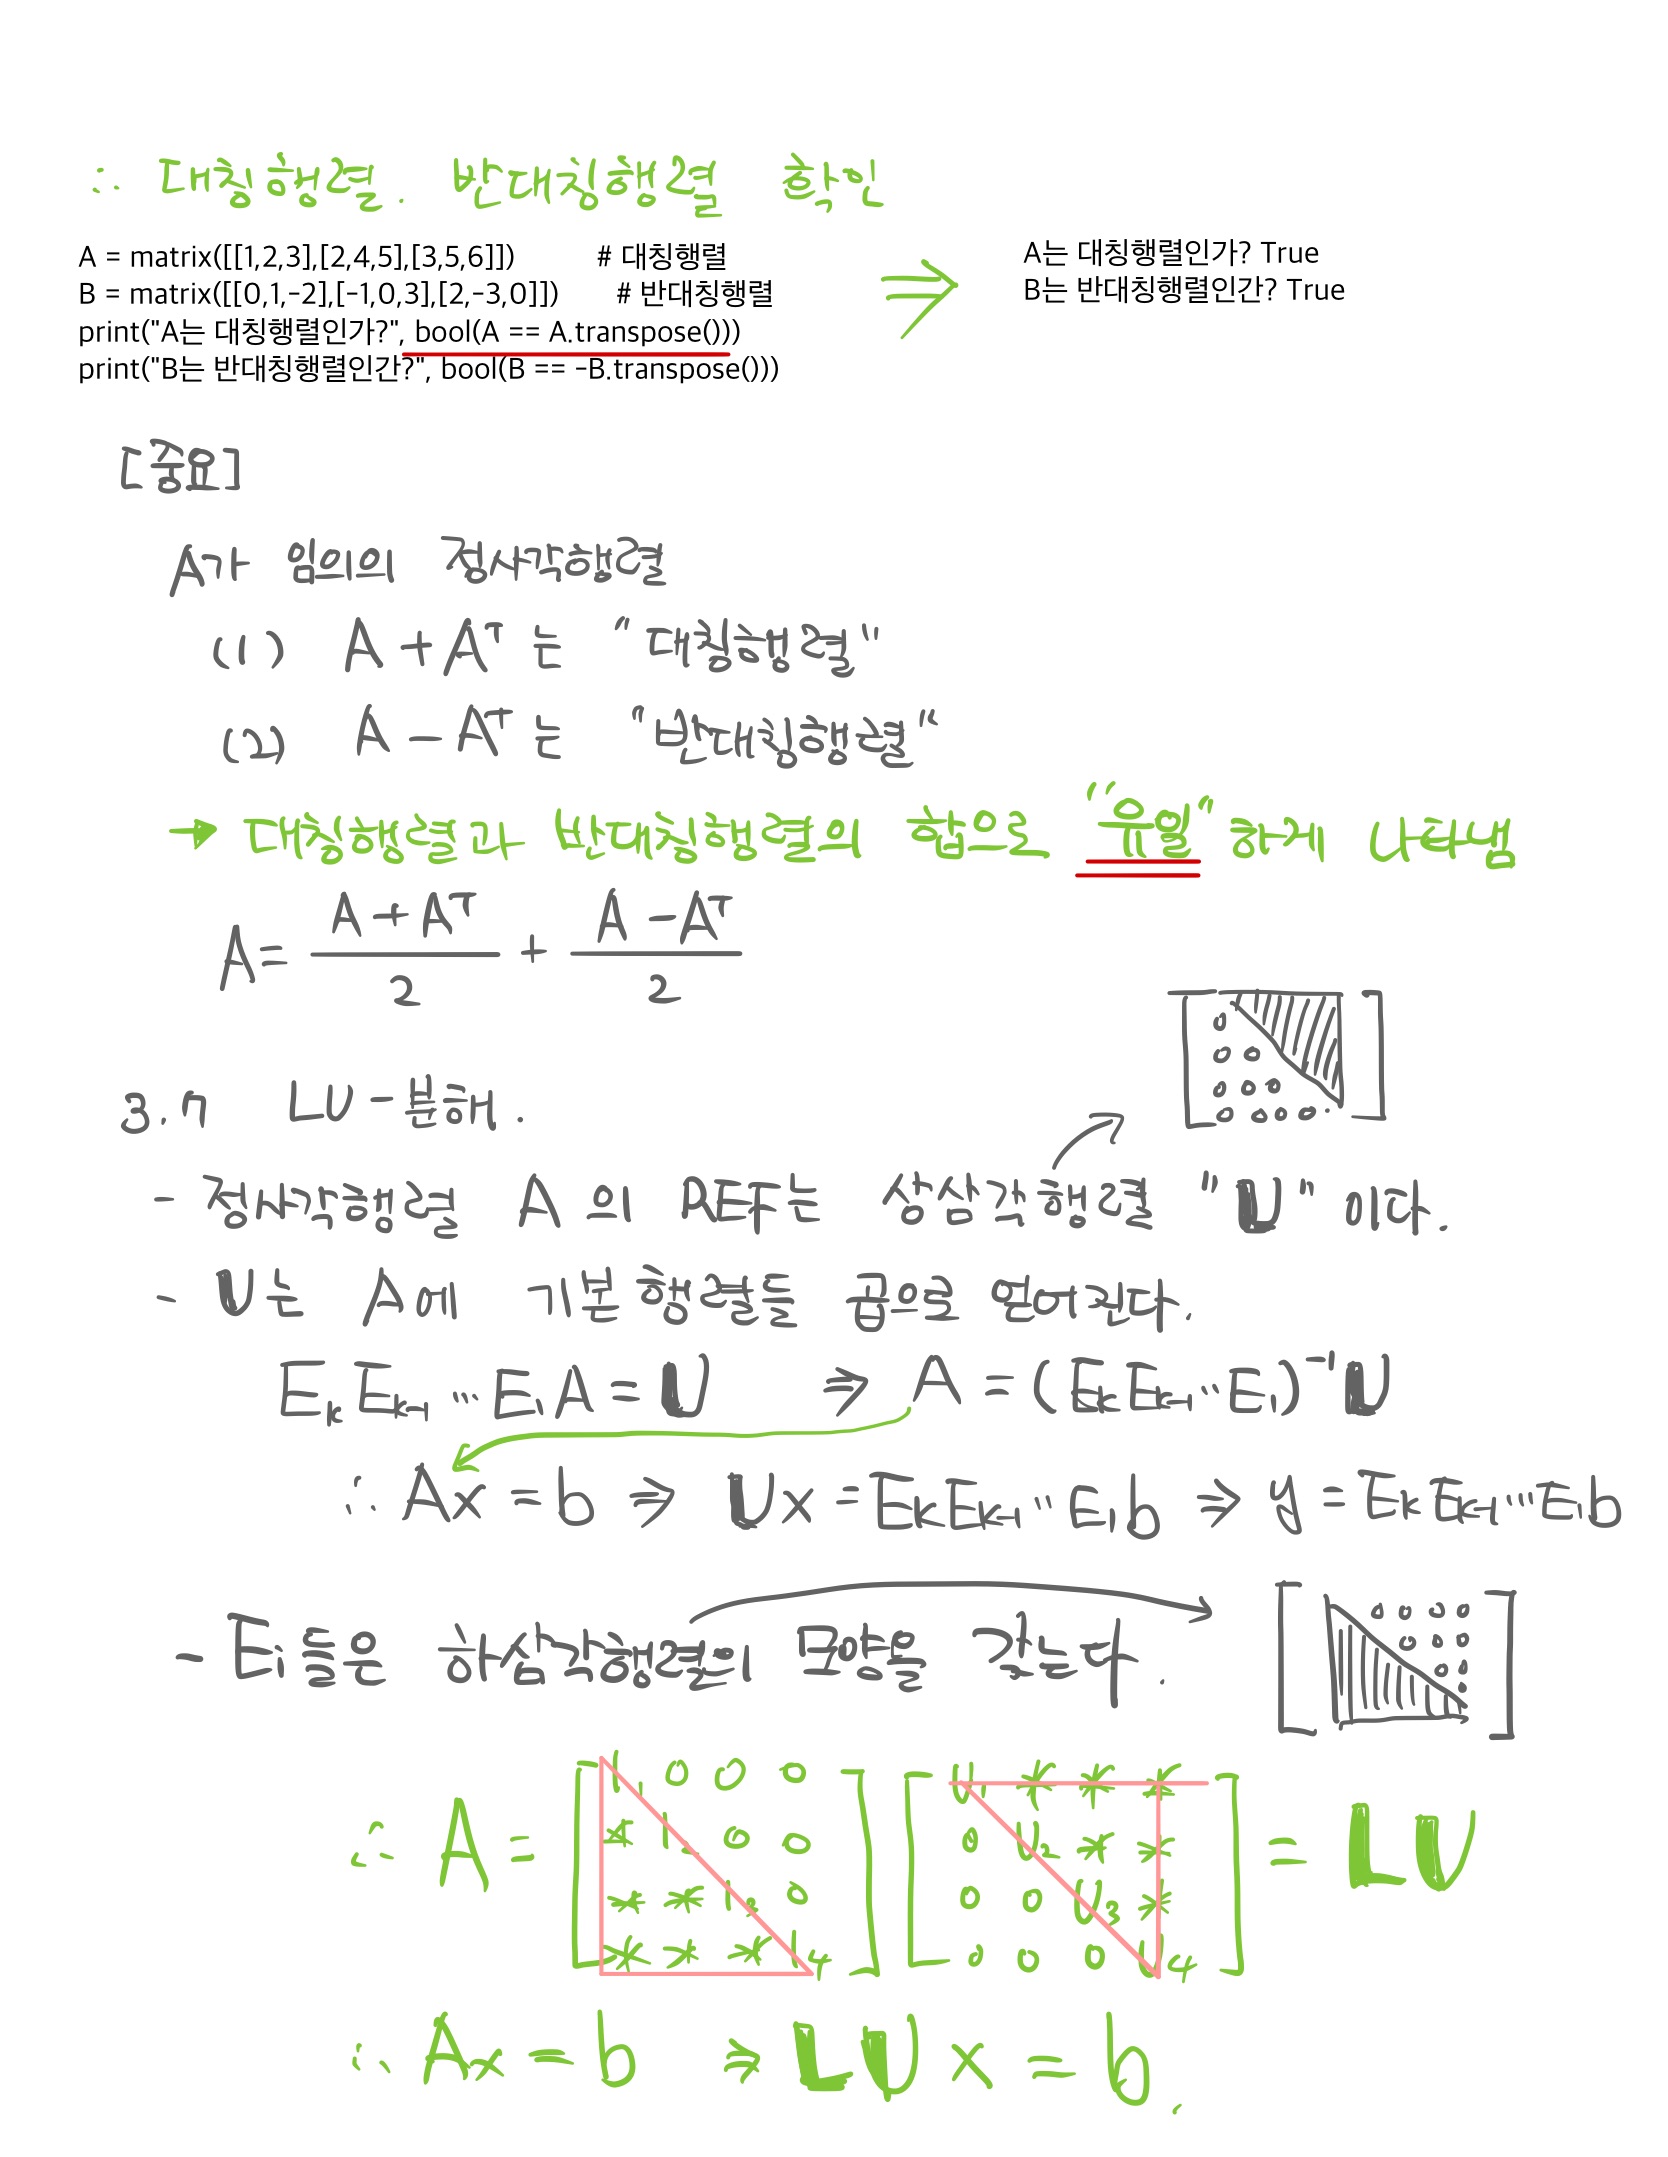 ∴ 대칭행렬. 반대칭행렬 확인
A = matrix([[1,2,3],[2,4,5],[3,5,6]]) # 대칭행렬
B = matrix([[0,1,-2],[-1,0,3],[2,-3,0]]) # 반대칭행렬
print("A는 대칭행렬인가?", bool(A == A.transpose()))
print("B는 반대칭행렬인간?", bool(B == -B.transpose()))
⇒
A는 대칭행렬인가? True
B는 반대칭행렬인간? True
[중요]
A가 임의의 정사각행렬
(1) A + Aᵀ 는 "대칭행렬"
(2) A - Aᵀ 는 "반대칭행렬"
→ 대칭행렬과 반대칭행렬의 합으로 "유일"하게 나타냄
A = (A + Aᵀ)/2 + (A - Aᵀ)/2
3.7 LU-분해.
- 정사각행렬 A의 REF는 상삼각행렬 "U"이다.
0
0 0
0 0 0
0 0 0 0
- U는 A에 기본행렬들 곱으로 얻어진다.
EₖEₖ₋₁…E₁A = U ⇒ A = (EₖEₖ₋₁…E₁)⁻¹U
∴ Ax = b ⇒ Ux = EₖEₖ₋₁…E₁b ⇒ y = EₖEₖ₋₁…E₁b
- Eᵢ들은 하삼각행렬의 모양을 갖는다.
0 0 0 0
0 0 0
0 0
0
∴ A = [l₁ 0 0 0; * l₂ 0 0; * * l₃ 0; * * * l₄] [U₁ * * *; 0 U₂ * *; 0 0 U₃ *; 0 0 0 U₄] = LU
∴ Ax = b ⇒ LUx = b.